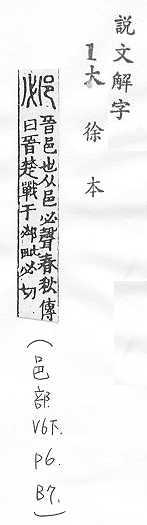 説文解字
1大徐本
邲 晉邑也从邑必聲春秋傳
曰晉楚戰于邲毗必切
(邑部 V6下. p6. B7.)